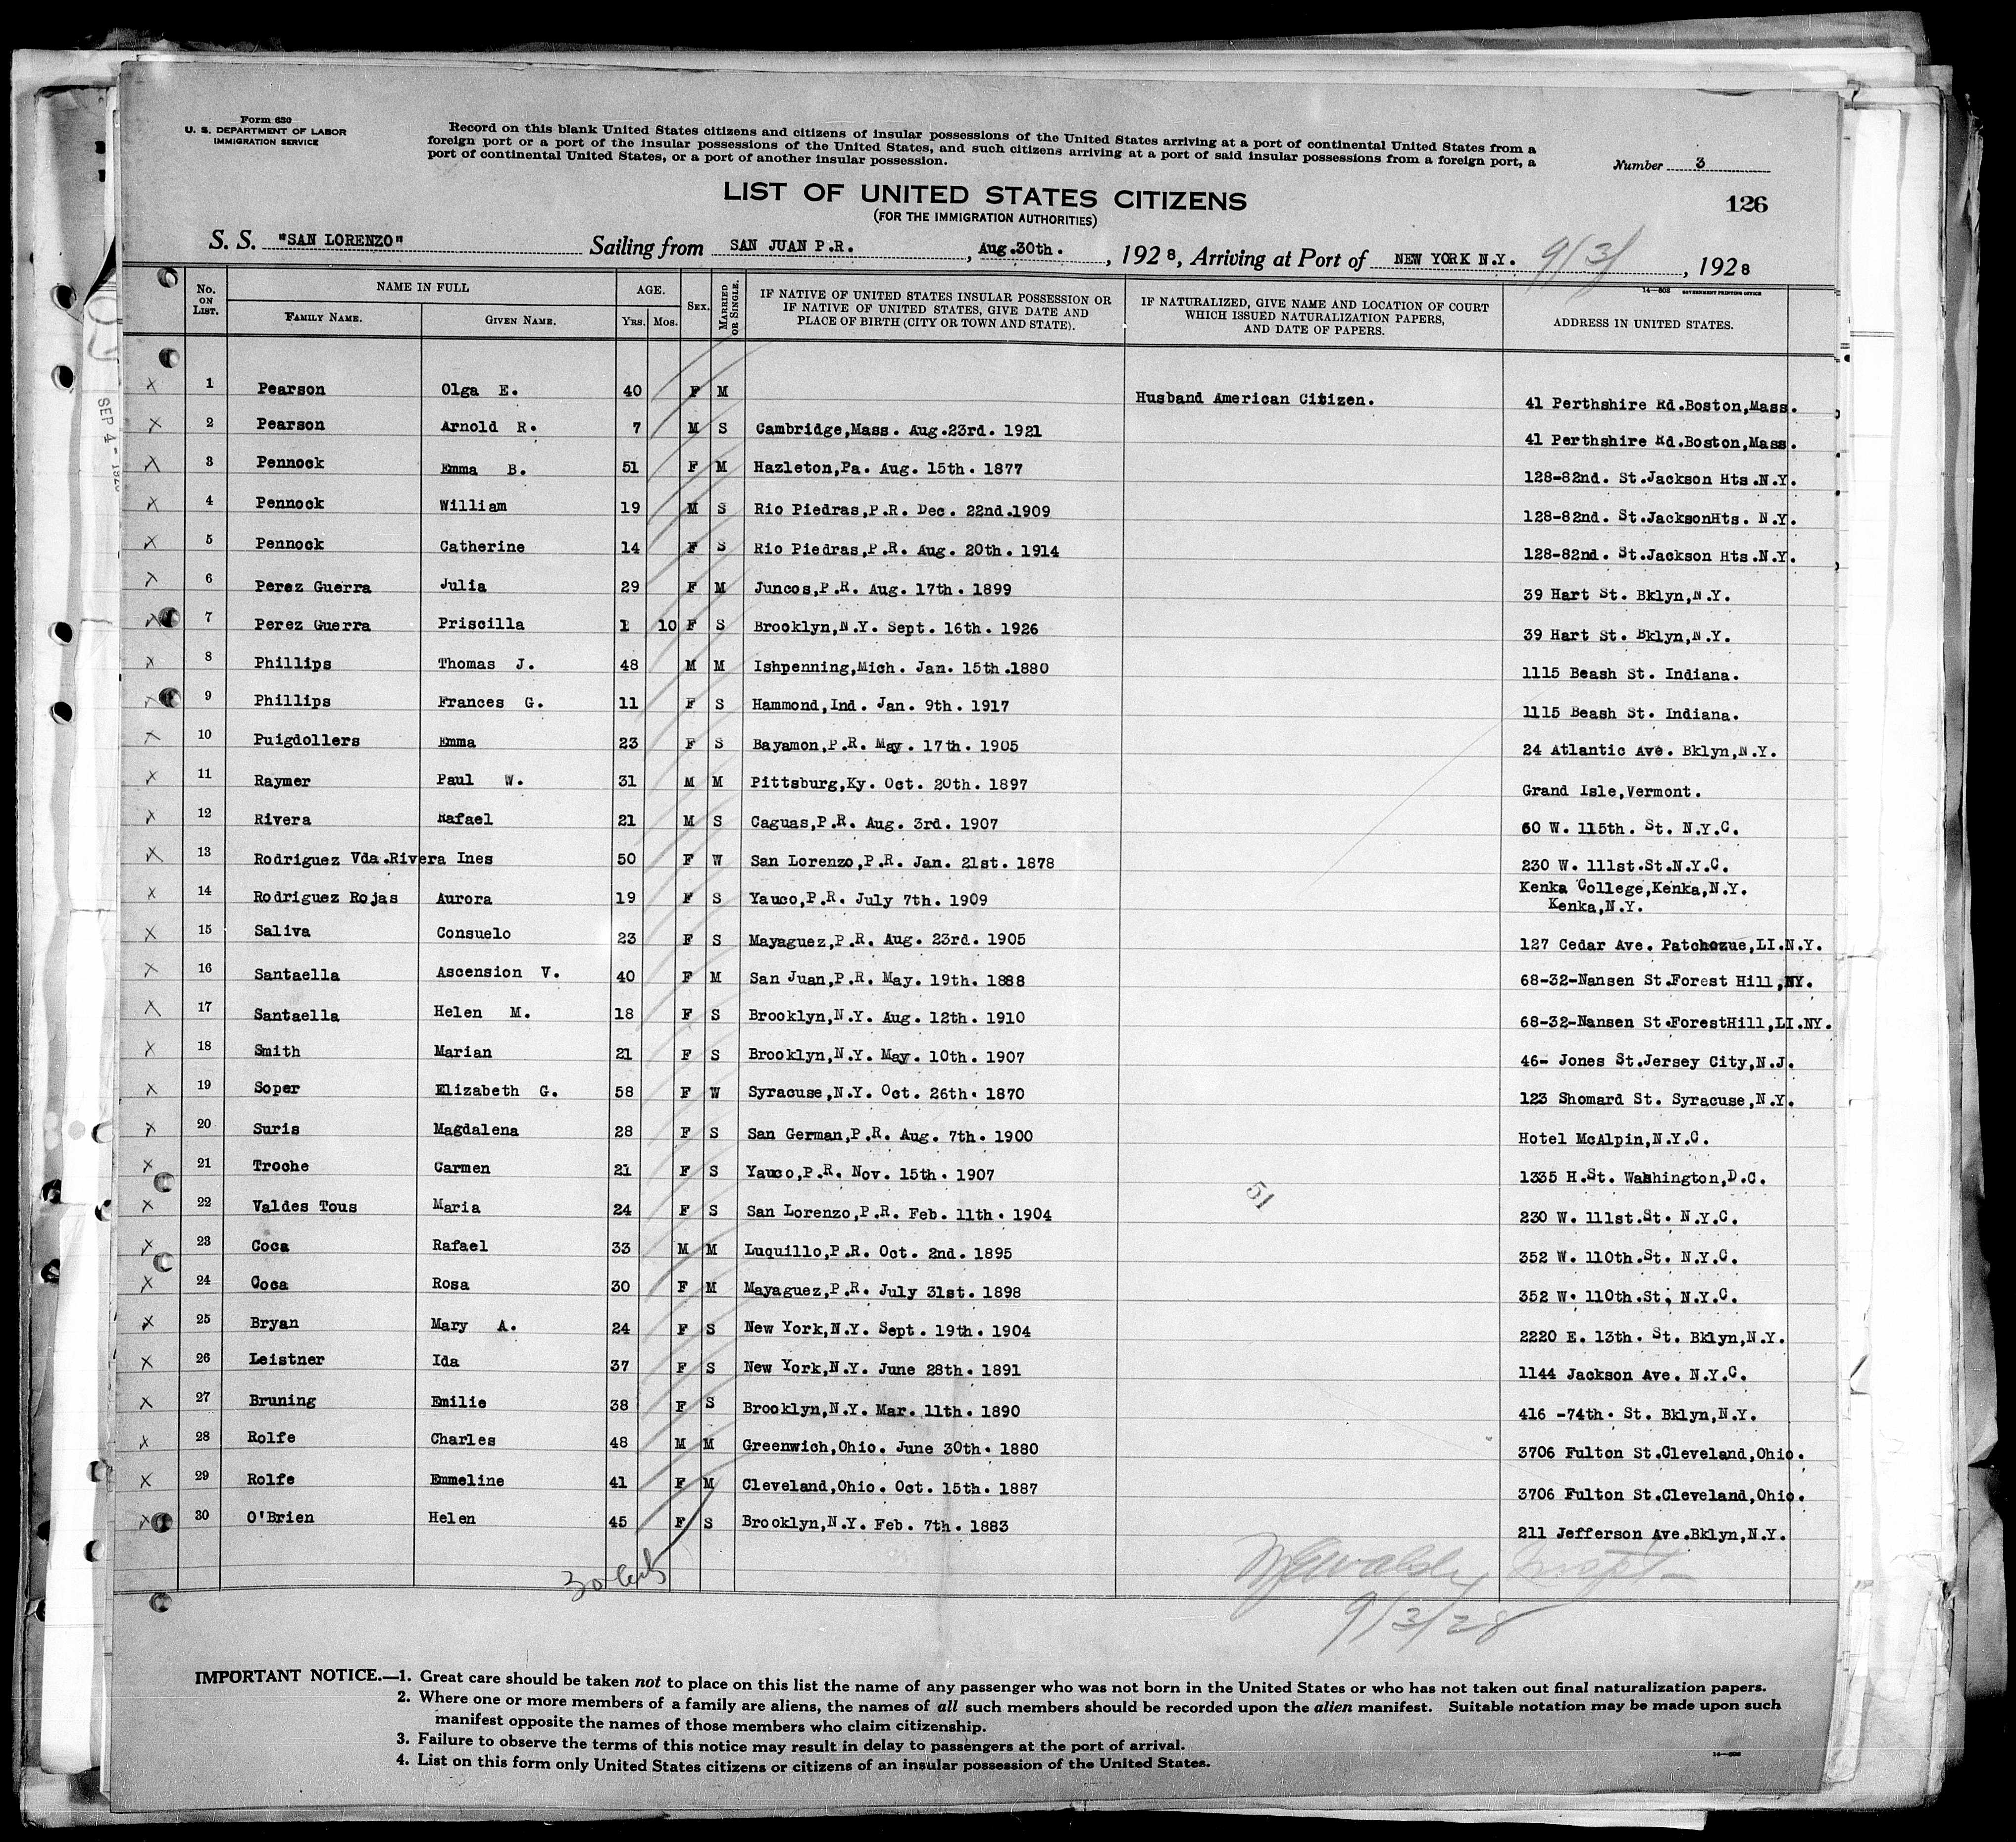 Form 630
U. S. DEPARTMENT OF LABOR
IMMIGRATION SERVICE
Record on this blank United States citizens and citizens of insular possessions of the United States arriving at a port of continental United States from a
foreign port or a port of the insular possessions of the United States, and such citizens arriving at a port of said insular possessions from a foreign port, a
port of continental United States, or a port of another insular possession.
Number 3
LIST OF UNITED STATES CITIZENS
(FOR THE IMMIGRATION AUTHORITIES)
126
S. S. "SAN LORENZO" Sailing from SAN JUAN P.R. , Aug.30th. , 1928, Arriving at Port of NEW YORK N.Y. 9/3/ , 1928
14—808 GOVERNMENT PRINTING OFFICE
No. ON LIST. NAME IN FULL FAMILY NAME. GIVEN NAME. AGE. YRS. MOS. SEX. MARRIED OR SINGLE. IF NATIVE OF UNITED STATES INSULAR POSSESSION OR IF NATIVE OF UNITED STATES, GIVE DATE AND PLACE OF BIRTH (CITY OR TOWN AND STATE). IF NATURALIZED, GIVE NAME AND LOCATION OF COURT WHICH ISSUED NATURALIZATION PAPERS, AND DATE OF PAPERS. ADDRESS IN UNITED STATES.
x 1 Pearson Olga E. 40 F M Husband American Citizen. 41 Perthshire Rd.Boston,Mass.
x 2 Pearson Arnold R. 7 M S Cambridge,Mass. Aug.23rd. 1921 41 Perthshire Rd.Boston,Mass.
x 3 Pennock Emma B. 51 F M Hazleton,Pa. Aug. 15th. 1877 128-82nd. St.Jackson Hts.N.Y.
x 4 Pennock William 19 M S Rio Piedras,P.R. Dec. 22nd.1909 128-82nd. St.JacksonHts. N.Y.
x 5 Pennock Catherine 14 F S Rio Piedras,P.R. Aug. 20th. 1914 128-82nd. St.Jackson Hts.N.Y.
x 6 Perez Guerra Julia 29 F M Juncos,P.R. Aug. 17th. 1899 39 Hart St. Bklyn,N.Y.
x 7 Perez Guerra Priscilla 1 10 F S Brooklyn,N.Y. Sept. 16th. 1926 39 Hart St. Bklyn,N.Y.
x 8 Phillips Thomas J. 48 M M Ishpenning,Mich. Jan. 15th.1880 1115 Beash St. Indiana.
x 9 Phillips Frances G. 11 F S Hammond,Ind. Jan. 9th. 1917 1115 Beash St. Indiana.
x 10 Puigdollers Emma 23 F S Bayamon,P.R. May. 17th. 1905 24 Atlantic Ave. Bklyn,N.Y.
x 11 Raymer Paul W. 31 M M Pittsburg,Ky. Oct. 20th. 1897 Grand Isle,Vermont.
x 12 Rivera Rafael 21 M S Caguas,P.R. Aug. 3rd. 1907 60 W. 115th. St. N.Y.C.
x 13 Rodriguez Vda.Rivera Ines 50 F W San Lorenzo,P.R. Jan. 21st. 1878 230 W. 111st.St.N.Y.C.
x 14 Rodriguez Rojas Aurora 19 F S Yauco,P.R. July 7th. 1909 Kenka College,Kenka,N.Y.
Kenka,N.Y.
x 15 Saliva Consuelo 23 F S Mayaguez,P.R. Aug. 23rd. 1905 127 Cedar Ave. Patchozue,LI.N.Y.
x 16 Santaella Ascension V. 40 F M San Juan,P.R. May. 19th. 1888 68-32-Nansen St.Forest Hill,NY.
x 17 Santaella Helen M. 18 F S Brooklyn,N.Y. Aug. 12th. 1910 68-32-Nansen St.ForestHill,LI.NY.
x 18 Smith Marian 21 F S Brooklyn,N.Y. May. 10th. 1907 46- Jones St.Jersey City,N.J.
x 19 Soper Elizabeth G. 58 F W Syracuse,N.Y. Oct. 26th. 1870 123 Shomard St. Syracuse,N.Y.
x 20 Suris Magdalena 28 F S San German,P.R. Aug. 7th. 1900 Hotel McAlpin,N.Y.C.
x 21 Troche Carmen 21 F S Yauco,P.R. Nov. 15th. 1907 1335 H.St. Washington,D.C.
x 22 Valdes Tous Maria 24 F S San Lorenzo,P.R. Feb. 11th. 1904 51 230 W. 111st.St. N.Y.C.
x 23 Coca Rafael 33 M M Luquillo,P.R. Oct. 2nd. 1895 352 W. 110th.St. N.Y.C.
x 24 Coca Rosa 30 F M Mayaguez,P.R. July 31st. 1898 352 W. 110th.St. N.Y.C.
x 25 Bryan Mary A. 24 F S New York,N.Y. Sept. 19th. 1904 2220 E. 13th. St. Bklyn,N.Y.
x 26 Leistner Ida 37 F S New York,N.Y. June 28th. 1891 1144 Jackson Ave. N.Y.C.
x 27 Bruning Emilie 38 F S Brooklyn,N.Y. Mar. 11th. 1890 416 -74th. St. Bklyn,N.Y.
x 28 Rolfe Charles 48 M M Greenwich,Ohio. June 30th. 1880 3706 Fulton St.Cleveland,Ohio.
x 29 Rolfe Emmeline 41 F M Cleveland,Ohio. Oct. 15th. 1887 3706 Fulton St.Cleveland,Ohio.
x 30 O'Brien Helen 45 F S Brooklyn,N.Y. Feb. 7th. 1883 211 Jefferson Ave.Bklyn,N.Y.
30
9/3/28
IMPORTANT NOTICE.—1. Great care should be taken not to place on this list the name of any passenger who was not born in the United States or who has not taken out final naturalization papers.
2. Where one or more members of a family are aliens, the names of all such members should be recorded upon the alien manifest. Suitable notation may be made upon such
manifest opposite the names of those members who claim citizenship.
3. Failure to observe the terms of this notice may result in delay to passengers at the port of arrival.
4. List on this form only United States citizens or citizens of an insular possession of the United States.
14—808
SEP 4 - 1928